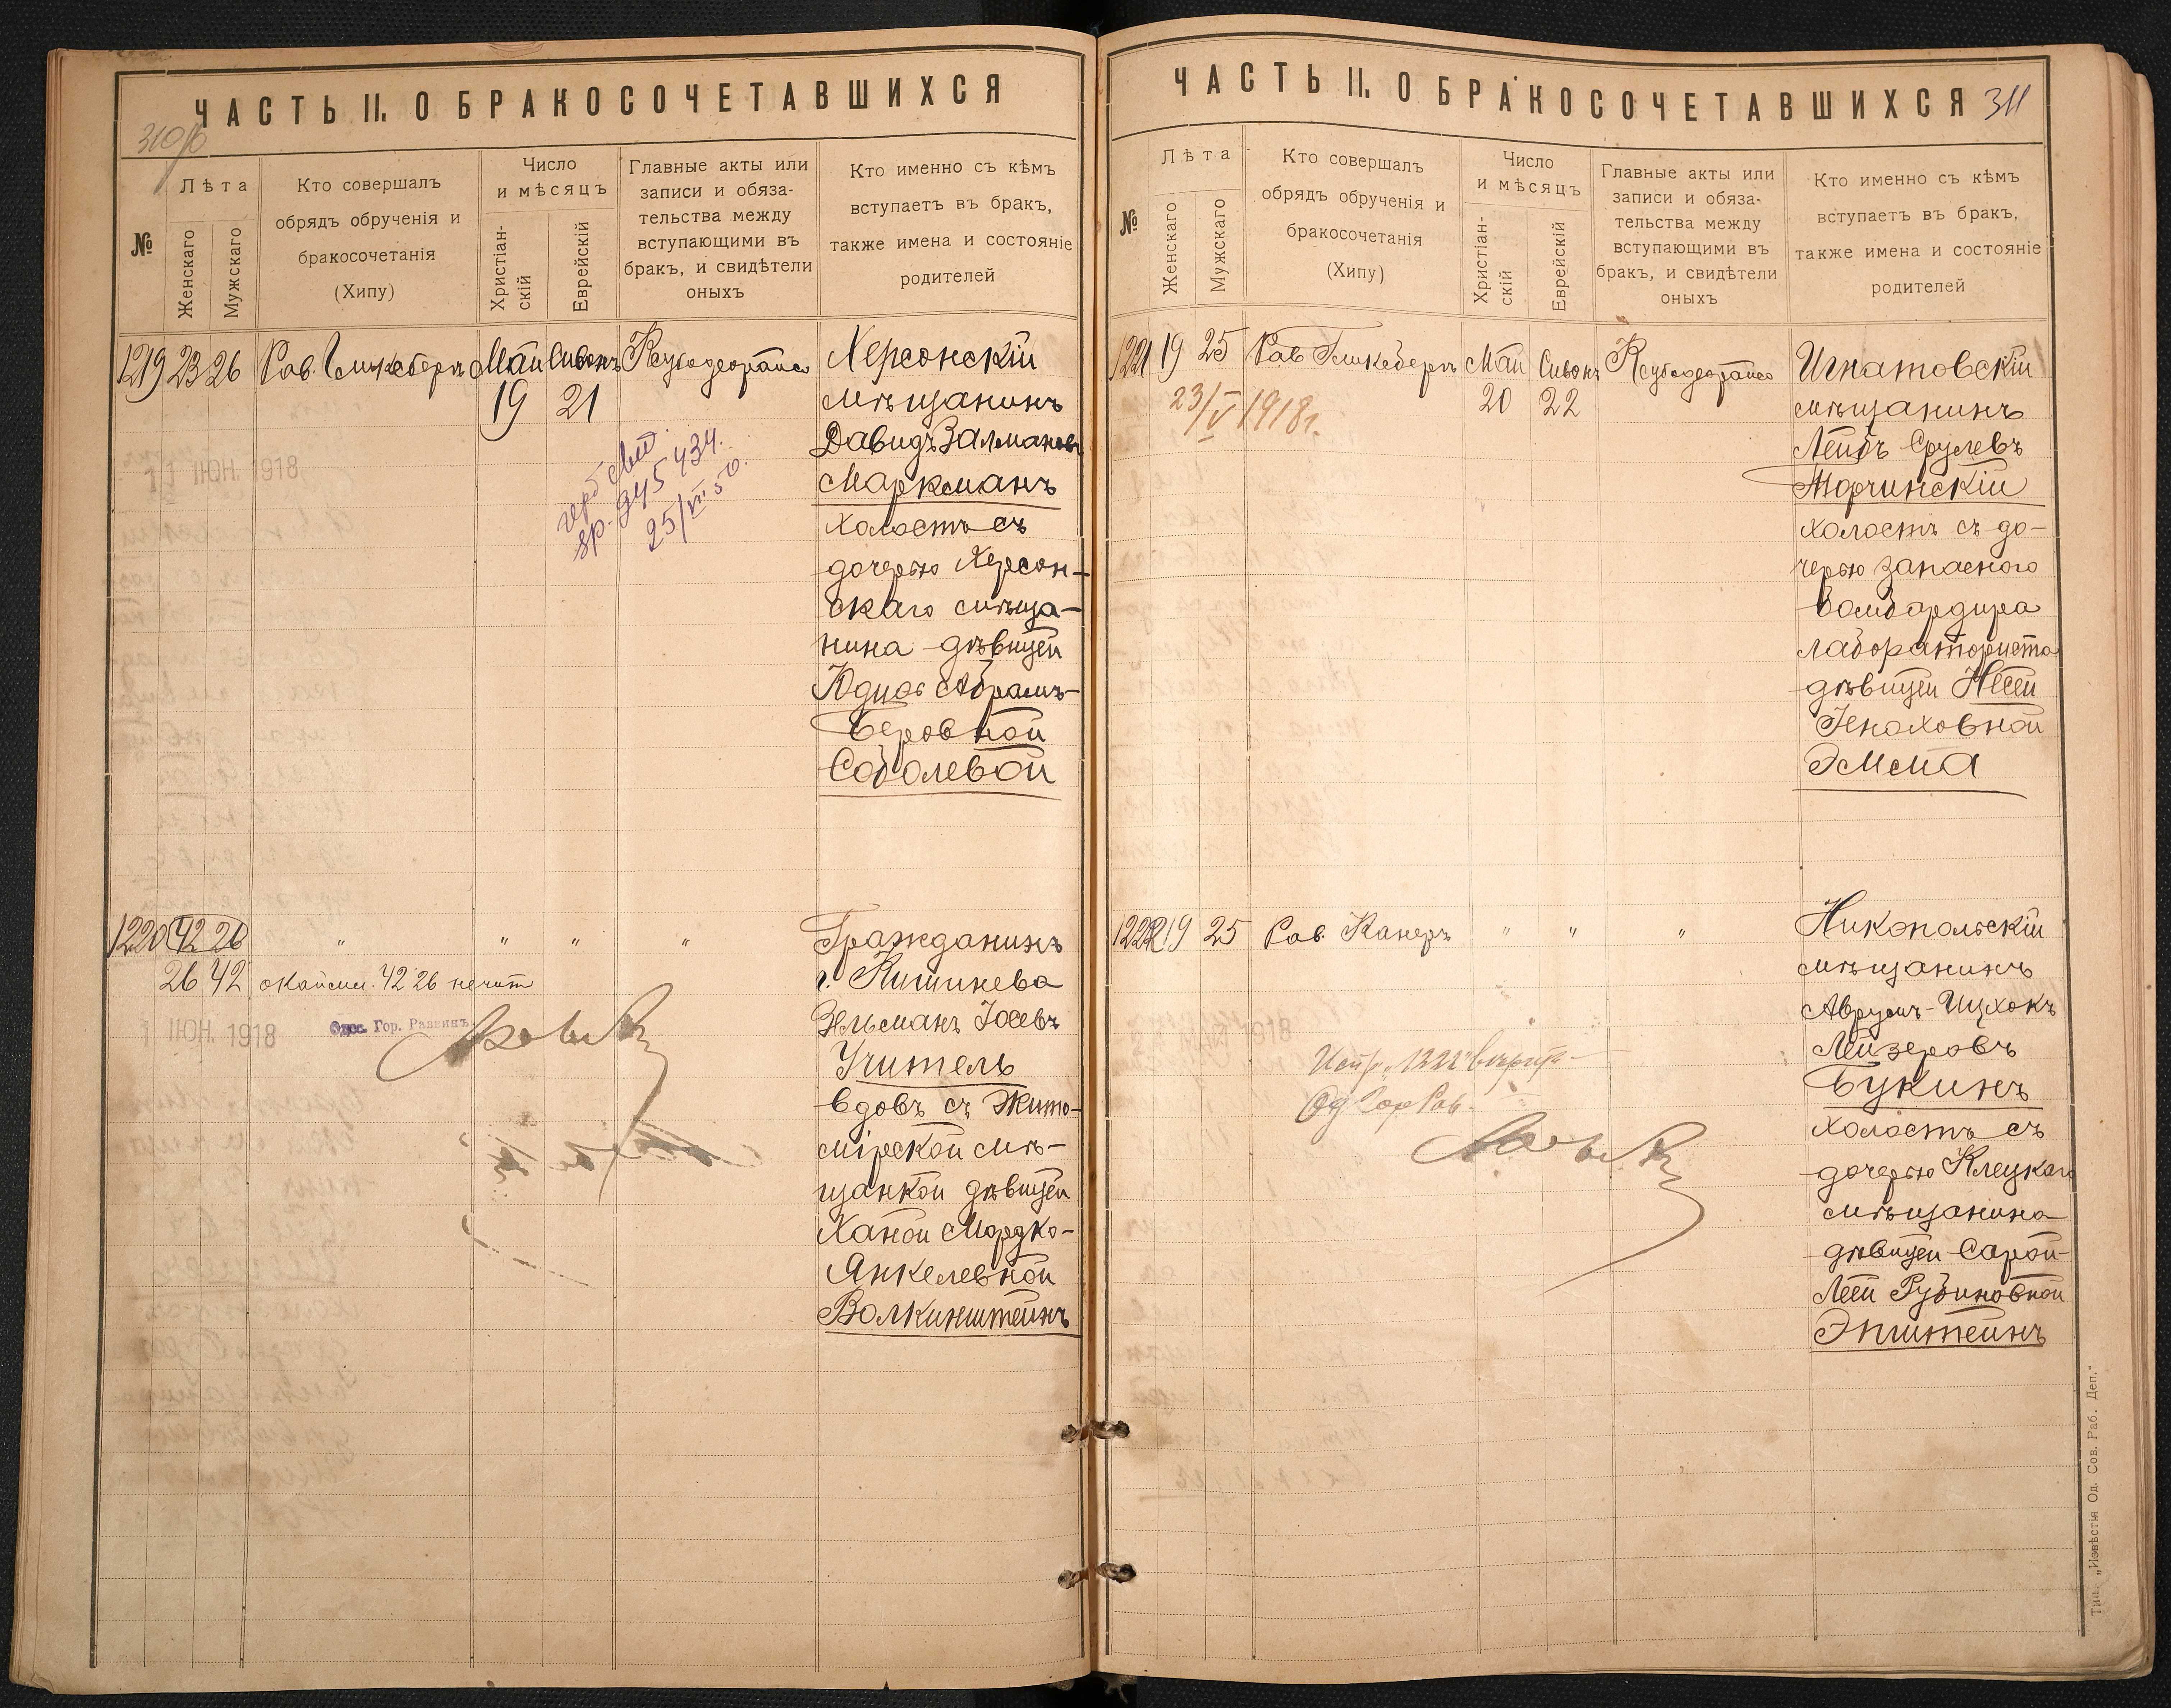 ЧАСТЬ II. О БРАКОСОЧЕТАВШИХСЯ
310/б
№
Лѣта
Женскаго
Мужскаго
Кто совершалъ
обрядъ обрученія и
бракосочетанія
(Хипу)
Число
и мѣсяцъ
Христіан-
скій
Еврейскій
Главные акты или
записи и обяза-
тельства между
вступающими въ
бракъ, и свидѣтели
оныхъ
Кто именно съ кѣмъ
вступаетъ въ бракъ,
также имена и состояніе
родителей
1219 23 26 Рав. Гликсбергъ Май Сивонъ Херсонскій
19 21 мѣщанинъ
Давидъ Залмановъ
Маркманъ
холостъ съ
дочерью Херсон-
скаго мѣща-
нина дѣвицей
Юдиѳ Абрамъ-
Беровной
Соболевой
11 ІЮН. 1918
945434
25/VII 50.
1220 42 26 " " " " Гражданинъ
26 42 окаймл. 42 26 нечит г. Кишинева
Эльманъ Іосевъ
Учитель
вдовъ съ Жито-
мірской мѣ-
щанкой дѣвицей
Ханой Мордко-
Янкелевной
Волкинштейнъ
1 ІЮН. 1918
Одес. Гор. Раввинъ
ЧАСТЬ II. О БРАКОСОЧЕТАВШИХСЯ
311
№
Лѣта
Женскаго
Мужскаго
Кто совершалъ
обрядъ обрученія и
бракосочетанія
(Хипу)
Число
и мѣсяцъ
Христіан-
скій
Еврейскій
Главные акты или
записи и обяза-
тельства между
вступающими въ
бракъ, и свидѣтели
оныхъ
Кто именно съ кѣмъ
вступаетъ въ бракъ,
также имена и состояніе
родителей
1221 19 25 Рав Гликсбергъ Май Сивонъ Игнатовскій
23/V 1918г. 20 22 мѣщанинъ
Лейбъ Срулевъ
Торчинскій
холостъ съ до-
черью запаснаго
бомбардира
лабораториста
дѣвицей Несей
Геноховной
Эмма
1222 19 25 Рав. Канеръ " " " Никопольскій
мѣщанинъ
Аврумъ-Ицхокъ
Лейзеровъ
Букинъ
холостъ съ
дочерью Клецкаго
мѣщанина
дѣвицей Сарой-
Леей Рубиновной
Эпштейнъ
Испр. "1222" вѣрить
Од Гор Рав.
Тип. „Извѣстія Од. Сов. Раб. Деп."